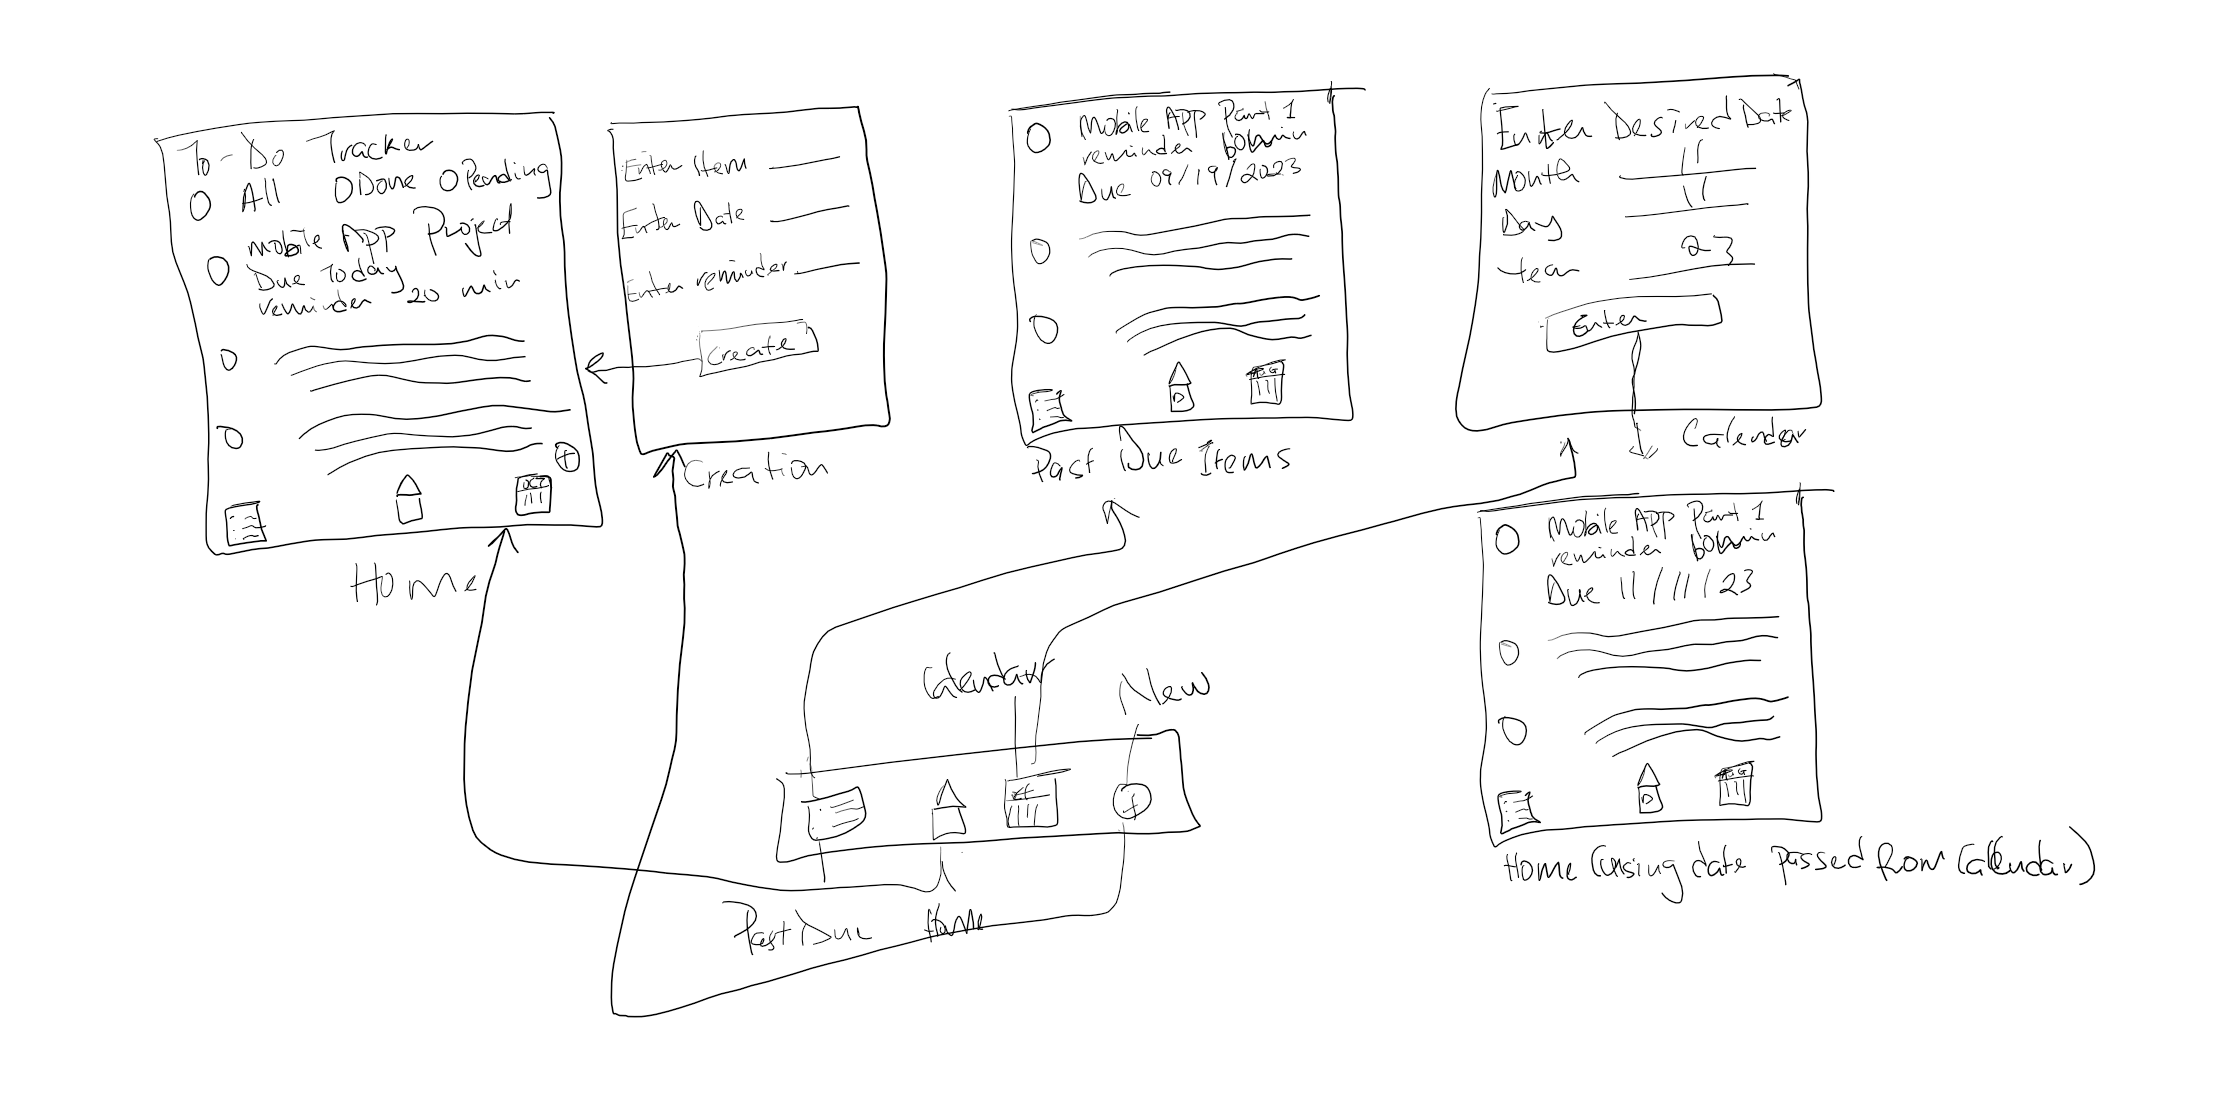 To-Do Tracker
All Done Pending
Mobile App Project
Due Today
reminder 20 min
OCT
Home
Enter Item
Enter Date
Enter reminder
Create
Creation
Mobile App Part 1
reminder 60min
Due 09/19/2023
Past Due Items
Enter Desired Date
Month 11
Day 11
Year 23
Enter
Calendar
Mobile App Part 1
reminder 60min
Due 11/11/23
Home (using date passed from Calendar)
Calendar
New
Past Due Home